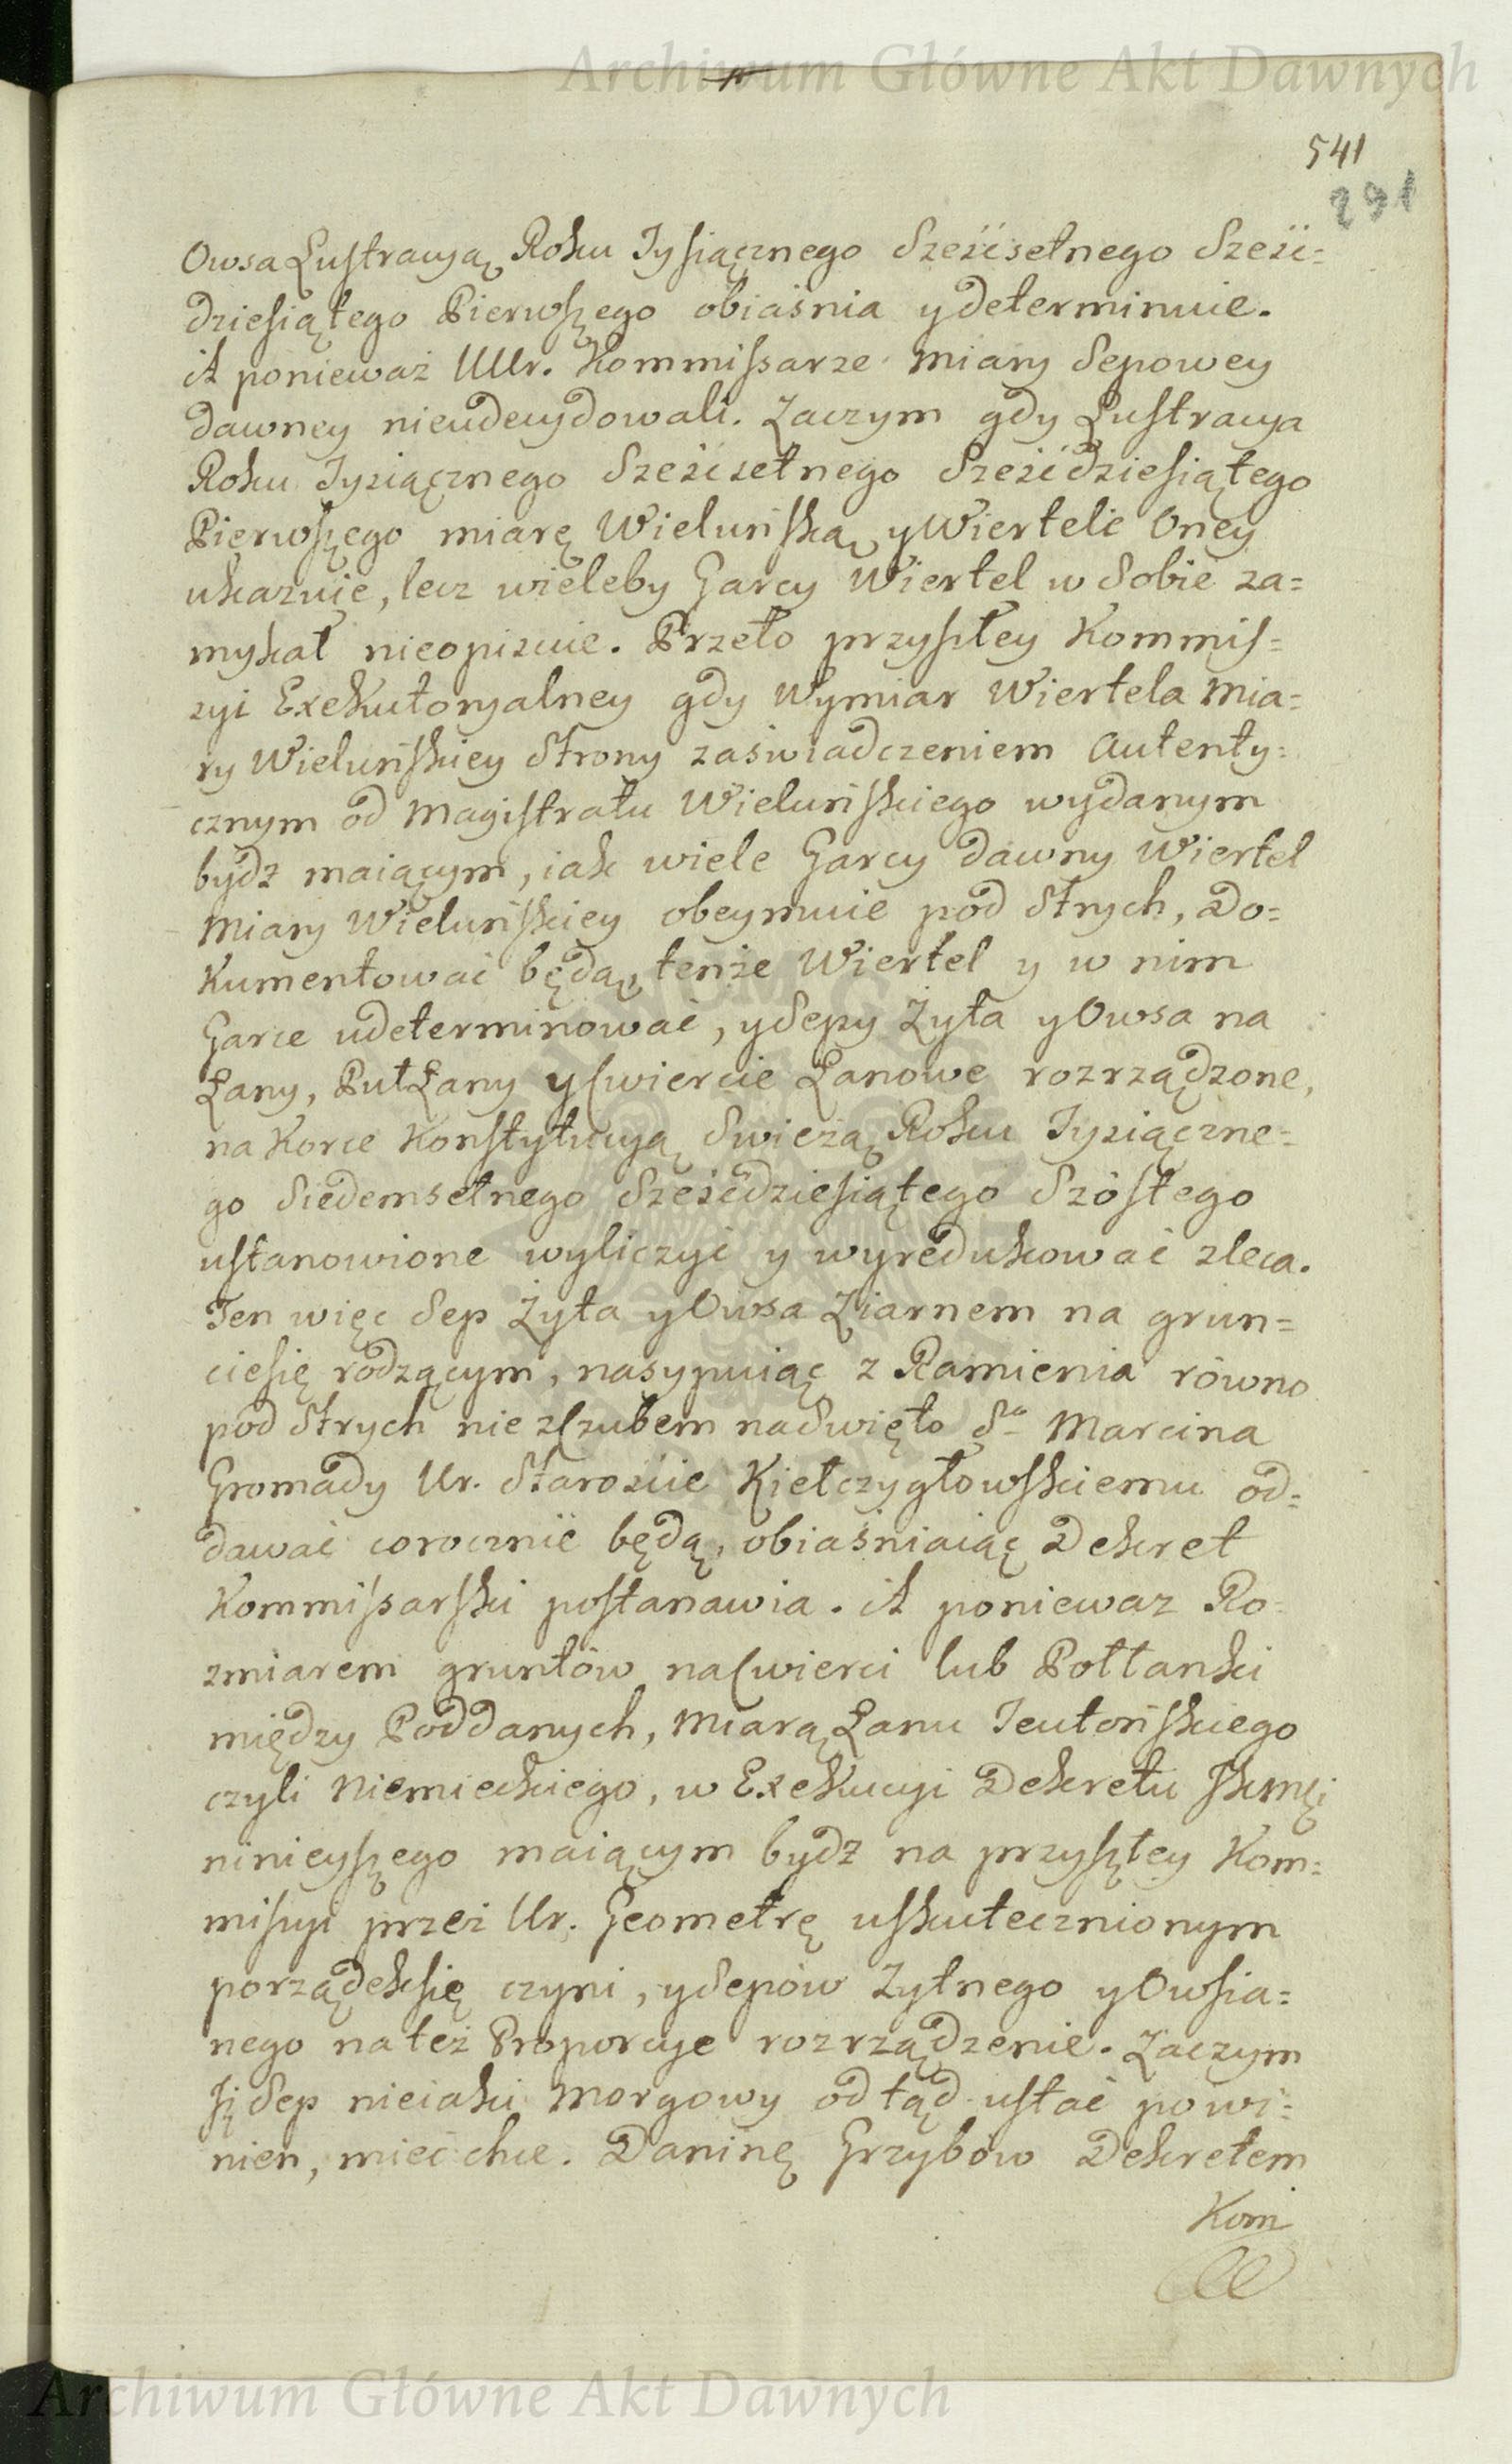 Archiwum Główne Akt Dawnych
541
291
Owsa Lustracyą Roku Tysiącznego Sześćsetnego Sześć=
dziesiątego Pierwszego obiaśnia y determinuie.
A ponieważ UUr. Kommissarze miary Sepowey
dawney nieudecydowali. Zaczym gdy Lustracya
Roku Tysiącznego Sześćsetnego Sześćdziesiątego
Pierwszego miarę Wieluńską y Wiertele Oney
ukazuie, lecz wieleby Garcy Wiertel w Sobie za=
mykał nieopisuie. Przeto przyszłey Kommis=
syi Exekutoryalney gdy Wymiar Wiertela Mia=
ry Wieluńskiey Strony zaświadczeniem Autenty=
cznym od Magistratu Wieluńskiego wydanym
bydz maiącym, iak wiele Garcy dawny Wiertel
Miary Wieluńskiey obeymuie pod Strych, Do=
kumentować będą, tenże Wiertel y w nim
Garce udeterminować, y Sepy Żyta y Owsa na
Łany, PułŁany y Cwiercie Łanowe rozrządzone,
na Korce Konstytucyą Swieżą Roku Tysiączne=
go Siedemsetnego Sześćdziesiątego Szóstego
ustanowione wyliczyć y wyredukować zleca.
Ten więc Sep Żyta y Owsa Ziarnem na grun=
ciesię rodzącym, nasypuiąc z Ramienia równo
pod Strych nie zCzubem naSwięto Sgo Marcina
Gromady Ur. Starośćie Kiełczygłowskiemu od=
dawać corocznie będą, obiaśniaiąc Dekret
Kommissarski postanawia. A ponieważ Ro=
zmiarem gruntów naCwierci lub Połłanki
między Poddanych, Miarą Łanu Teutońskiego
czyli Niemieckiego, w Exekucyi Dekretu
ninieyszego maiącym bydz na przyszłey Kom=
missyi przez Ur. Geometrę uskutecznionym
porządeksię czyni, ySepów Żytnego yOwsia=
nego na też Proporcye rozrządzenie. Zaczym
Sep nieiaki Morgowy odtąd ustać powi=
nien, mieć chce. Daninę Grzybów Dekretem
Kom
Archiwum Główne Akt Dawnych